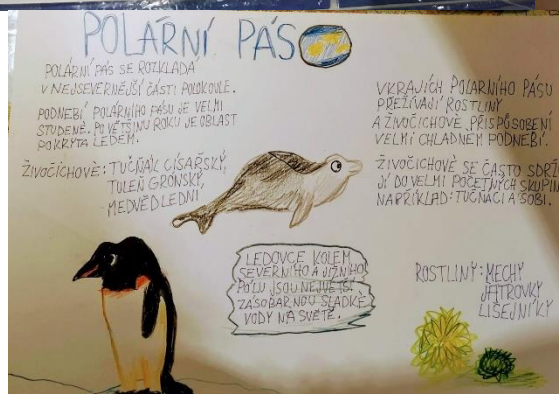 POLÁRNÍ PÁS
POLÁRNÍ PÁS SE ROZKLÁDÁ
V NEJSEVERNĚJŠÍ ČÁSTI POLOKOULE.
PODNEBÍ POLÁRNÍHO PÁSU JE VELMI
STUDENÉ. PO VĚTŠINU ROKU JE OBLAST
POKRYTA LEDEM.
ŽIVOČICHOVÉ: TUČŇÁK CÍSAŘSKÝ,
TULEŇ GRÓNSKÝ,
MEDVĚD LEDNÍ
LEDOVCE KOLEM
SEVERNÍHO A JIŽNÍHO
PÓLU JSOU NEJVĚTŠÍ
ZÁSOBÁRNOU SLADKÉ
VODY NA SVĚTĚ.
V KRAJÍCH POLÁRNÍHO PÁSU
PŘEŽÍVAJÍ ROSTLINY
A ŽIVOČICHOVÉ PŘISPŮSOBENÍ
VELMI CHLADNÉM PODNEBÍ.
ŽIVOČICHOVÉ SE ČASTO SDRŽU
JÍ DO VELMI POČETNÝCH SKUPIN
NAPŘÍKLAD: TUČŇÁCI A SOBI.
ROSTLINY: MECHY
JÁTROVKY
LIŠEJNÍKY